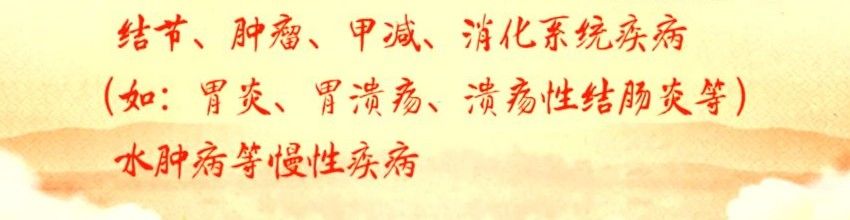 结节、肿瘤、甲减、消化系统疾病
（如：胃炎、胃溃疡、溃疡性结肠炎等）
水肿病等慢性疾病